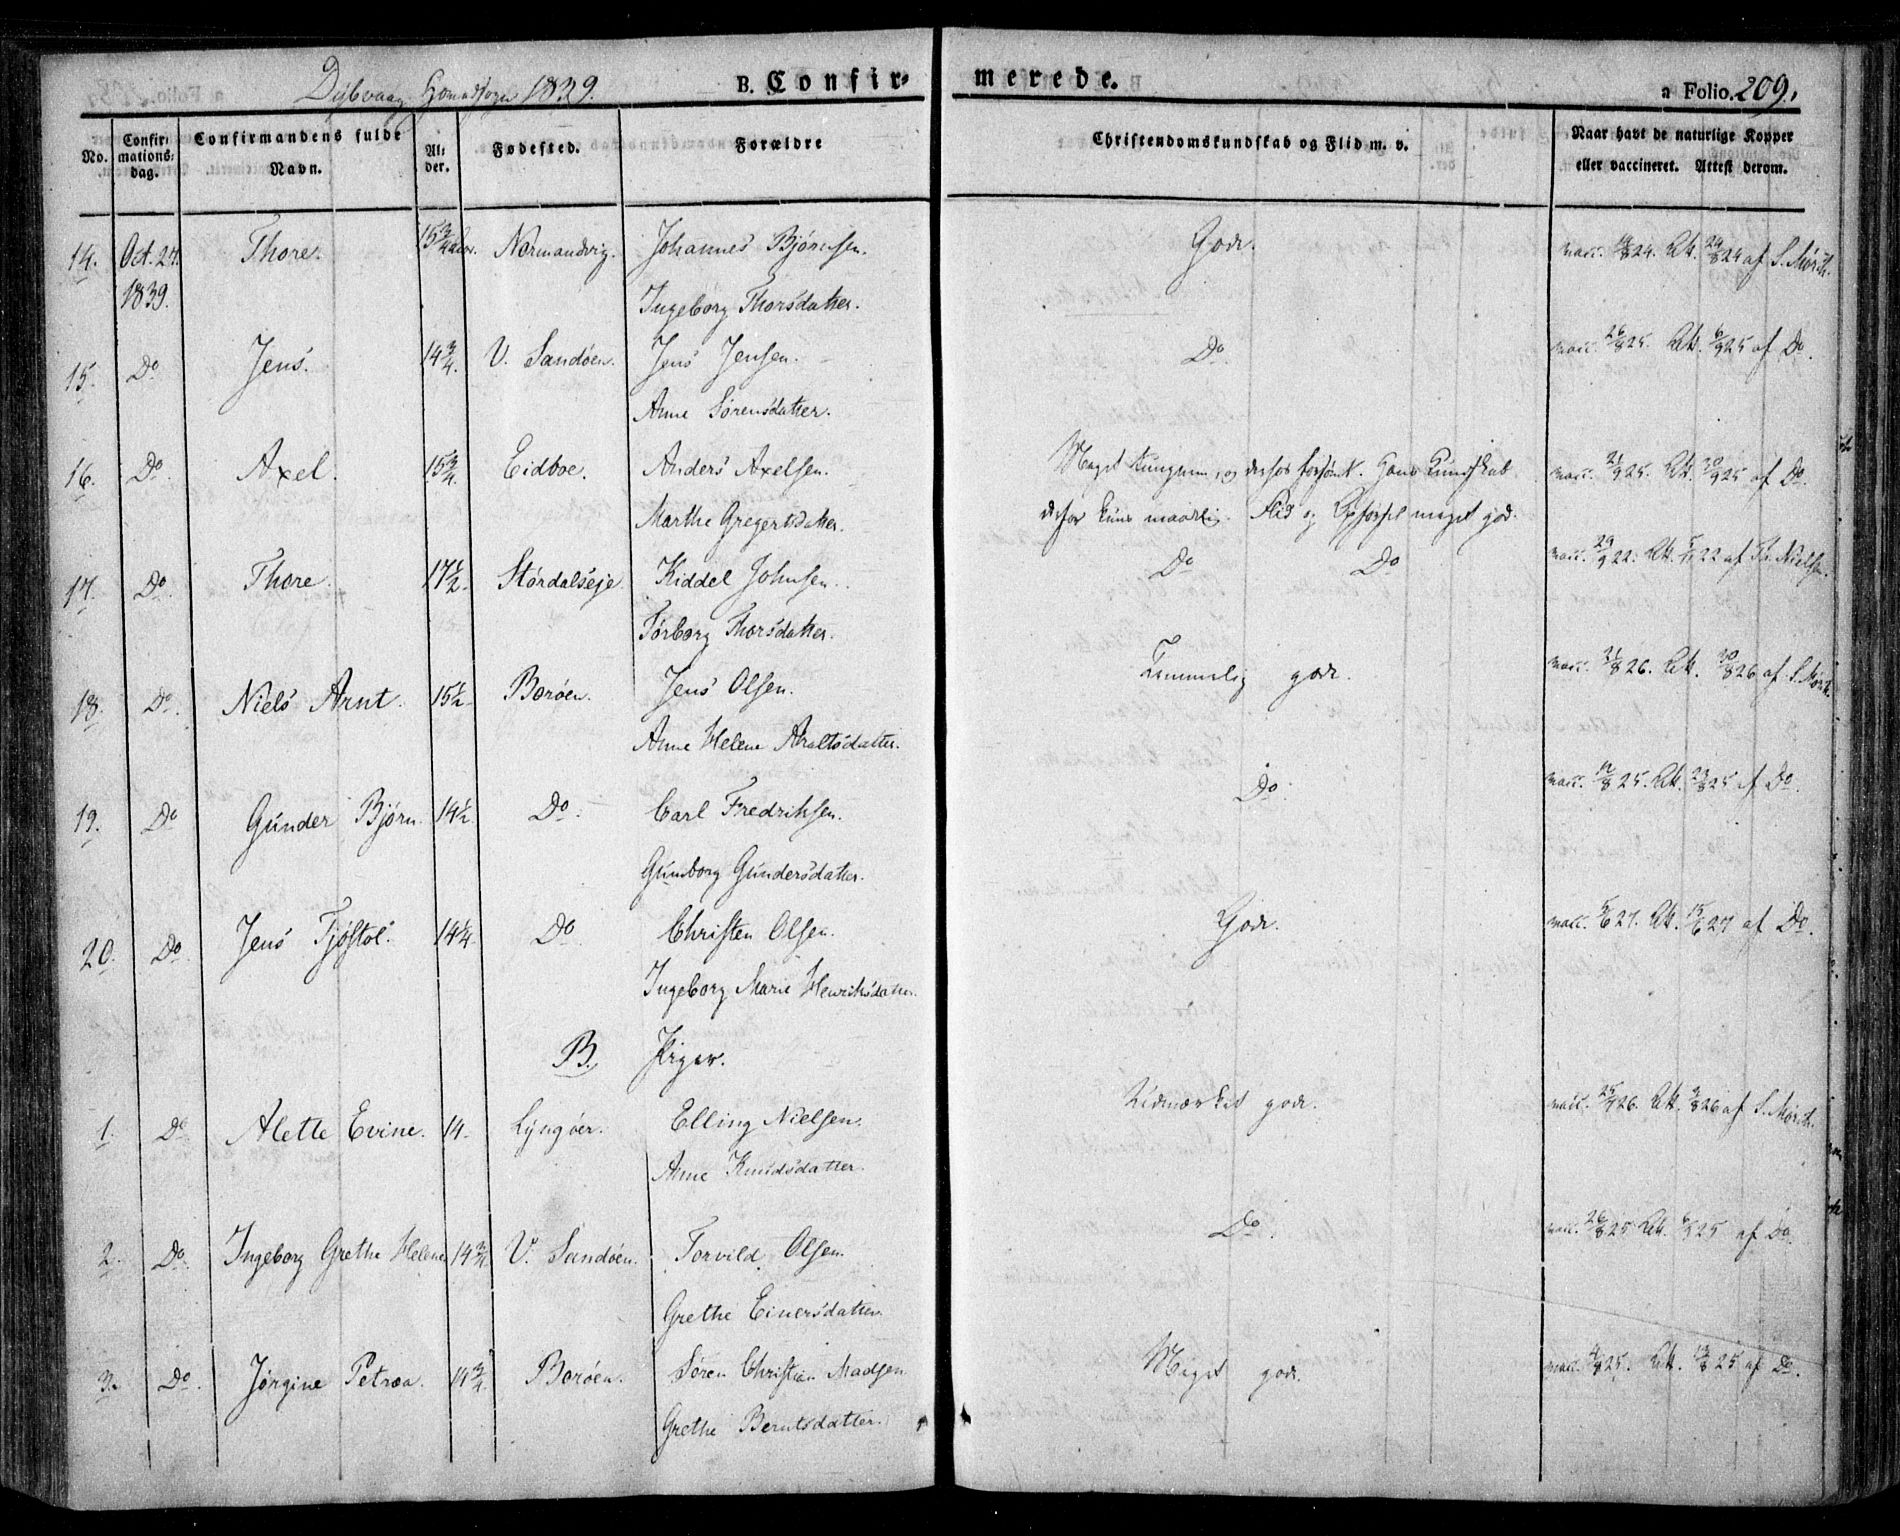 Dybvaag Hovedsogn 1839. B. Confir- merede. a Folio. 209.
No. Confir- mations- dag. Confirmandens fulde Navn. Al- der. Fødested. Forældre Christendomskundskab og Flid m. v. Naar havt de naturlige Kopper eller vaccineret. Attest derom.
14. Oct. 27. Thore. 15 3/4 Normandvig. Johannes Bjørnsen. God. vacc. 19/8 24. Att. 29/8 24 af S. Mørch.
1839. Ingeborg Thorsdatter.
15. Do Jens. 14 3/4. V. Sandøen. Jens Jensen. Do. vacc. 26/8 25. Att. 6/9 25 af Do.
Anne Sørensdatter.
16. Do. Axel. 15 3/4. Eidboe. Anders Axelsen. Meget tungnem, og derfor forsømt. Hans Kundskab vacc. 21/9 25. Att. 30/9 25 af Do.
Marthe Gregertsdatter. derfor kuns maadelig. Flid og Opførsel meget god.
17. Do. Thore. 17 1/2. Stordalseje Kiddel Johnsen. Do Do vacc. 29/9 22. Att. 22 af Th. Nielsen.
Torborg Thorsdatter.
18. Do. Niels Arnt. 15 1/2. Borøen. Jens Olsen. Temmelig god. vacc. 21/8 26. Att. 30/8 26 af S. Mørch.
Anne Helene Araltsdatter.
19. Do Gunder Bjørn. 14 1/2. Do. Carl Fredriksen. Do. vacc. 12/8 25. Att. 23/8 25 af Do.
Gumborg Gundersdatter.
20. Do. Jens Tjøstol. 14 1/4. Do Christen Olsen. God. vacc. 5/6 27. Att. 15/6 27 af Do.
Ingeborg Marie Henriksdatter.
B. Piger.
1. Do Alette Evine. 14. Lyngøer. Elling Nielsen. Udmærket god. vacc. 25/7 26. Att. 3/8 26 af S. Mørch.
Anne Knudsdatter.
2. Do. Ingeborg Grethe Helene 14 3/4. V. Sandøen. Torvild Olsen. Do. vacc. 26/8 25 Att. 6/9 25 af Do.
Grethe Einersdatter.
3. Do. Jørgine Petrea. 14 3/4. Borøen. Søren Christian Madsen Meget god. vacc. 4/8 25. Att. 13/8 25 af Do.
Grethe Berntsdatter.